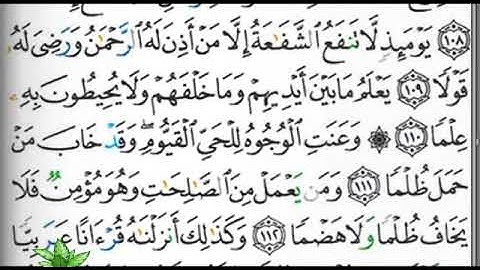 ١٠٨ يَوْمَئِذٍ لَّا تَنفَعُ الشَّفَٰعَةُ إِلَّا مَنْ أَذِنَ لَهُ الرَّحْمَٰنُ وَرَضِيَ لَهُ
قَوْلًا ١٠٩ يَعْلَمُ مَا بَيْنَ أَيْدِيهِمْ وَمَا خَلْفَهُمْ وَلَا يُحِيطُونَ بِهِ
عِلْمًا ١١٠ ۞ وَعَنَتِ الْوُجُوهُ لِلْحَيِّ الْقَيُّومِ ۖ وَقَدْ خَابَ مَنْ
حَمَلَ ظُلْمًا ١١١ وَمَن يَعْمَلْ مِنَ الصَّٰلِحَٰتِ وَهُوَ مُؤْمِنٌ فَلَا
يَخَافُ ظُلْمًا وَلَا هَضْمًا ١١٢ وَكَذَٰلِكَ أَنزَلْنَٰهُ قُرْءَانًا عَرَبِيًّا